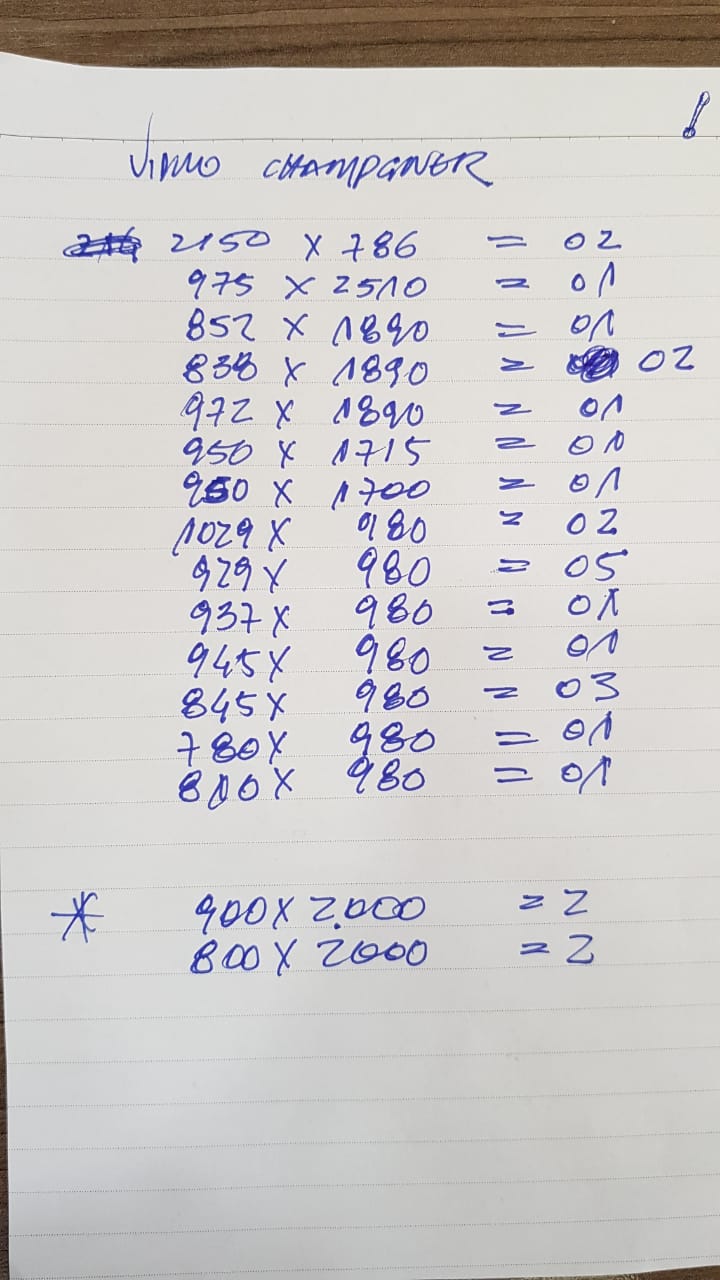 VIDRO CHAMPGNER
2150 X 786 = 02
975 X 2510 = 01
852 X 1890 = 01
838 X 1890 = 02
972 X 1890 = 01
950 X 1715 = 01
950 X 1700 = 01
1029 X 980 = 02
929 X 980 = 05
937 X 980 = 01
945 X 980 = 01
845 X 980 = 03
780 X 980 = 01
810 X 980 = 01
* 900 X 2.000 = 2
800 X 2000 = 2